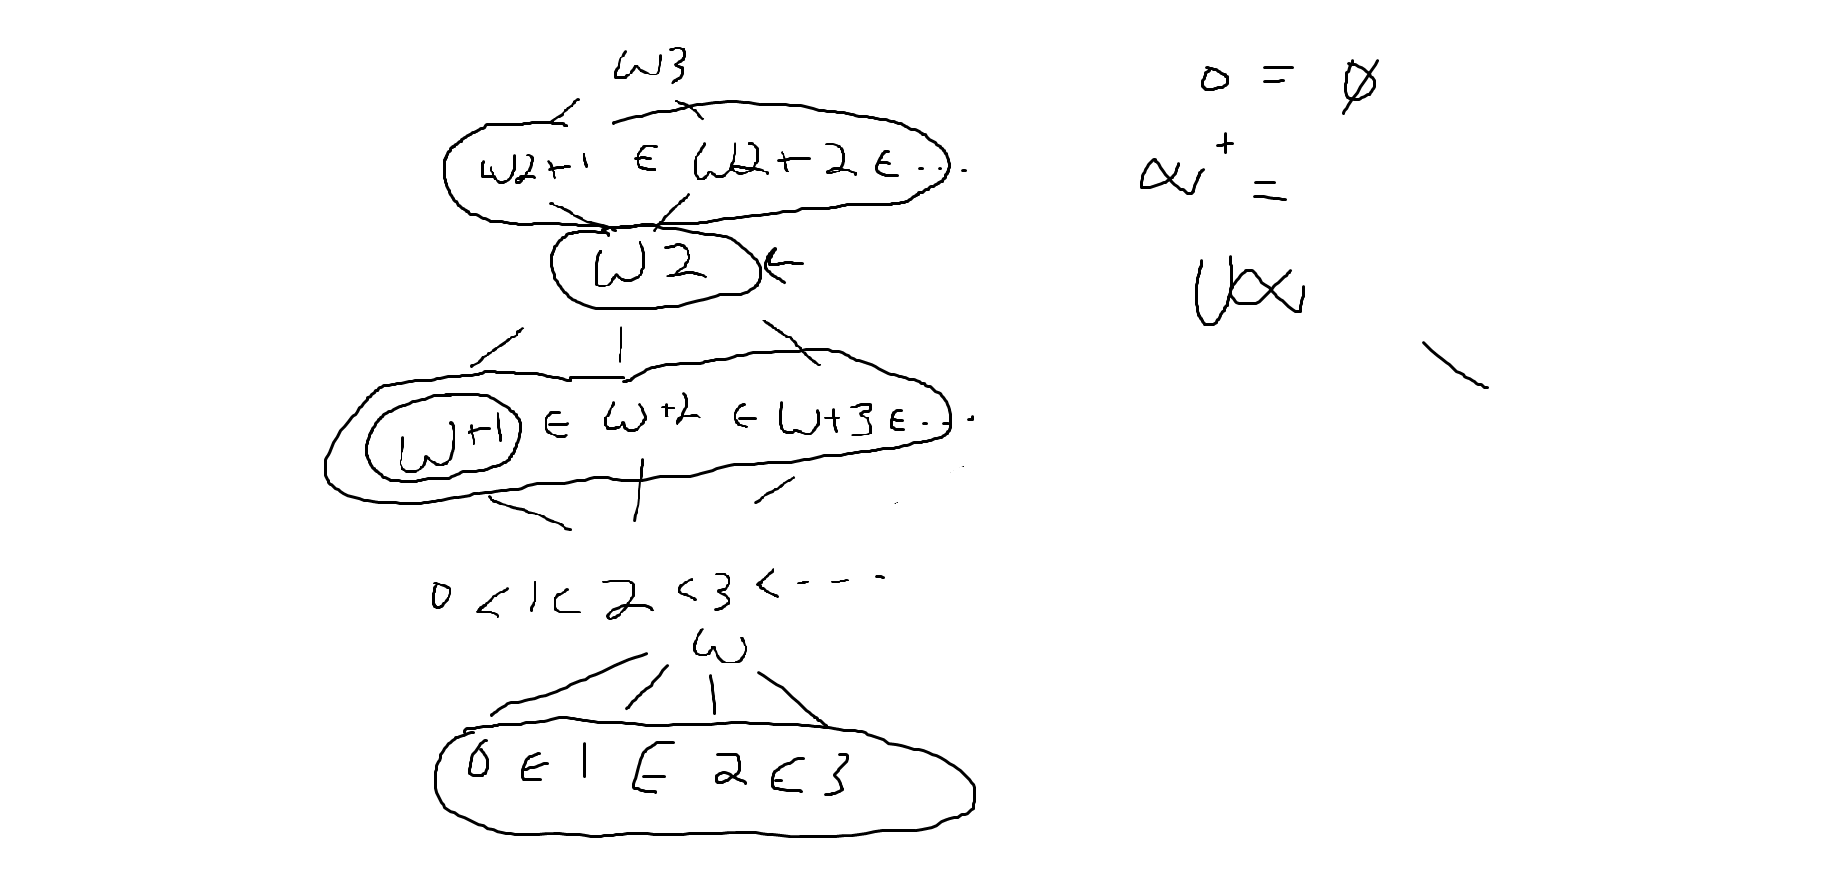 ω3
ω2+1 ∈ ω2+2 ∈ ...
ω2 ←
ω+1 ∈ ω+2 ∈ ω+3 ∈ ...
0 < 1 < 2 < 3 < ---
ω
0 ∈ 1 ∈ 2 ∈ 3
0 = ∅
α⁺ =
∪α